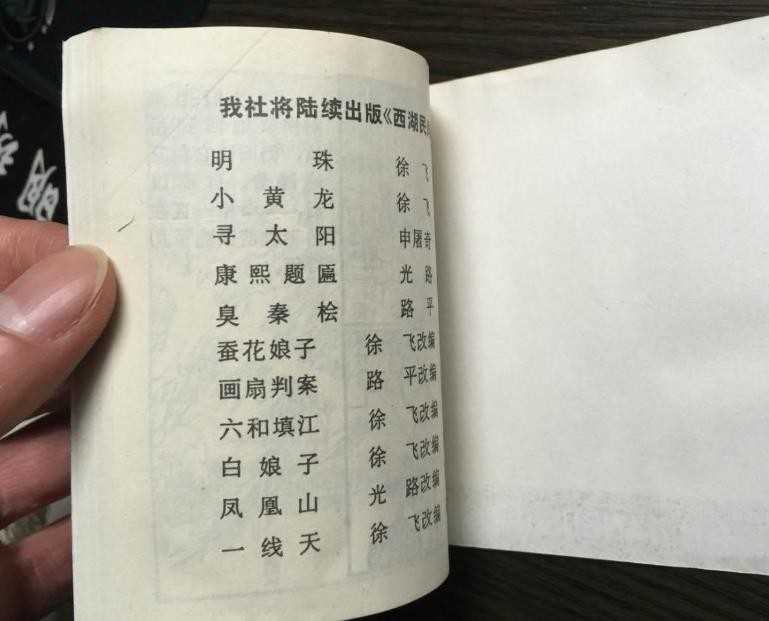 我社将陆续出版《西湖民
明珠 徐飞
小黄龙 徐飞
寻太阳 申屠奇
康熙题匾 光路
臭秦桧 路平
蚕花娘子 徐飞改编
画扇判案 路平改编
六和填江 徐飞改编
白娘子 徐飞改编
凤凰山 光路改编
一线天 徐飞改编